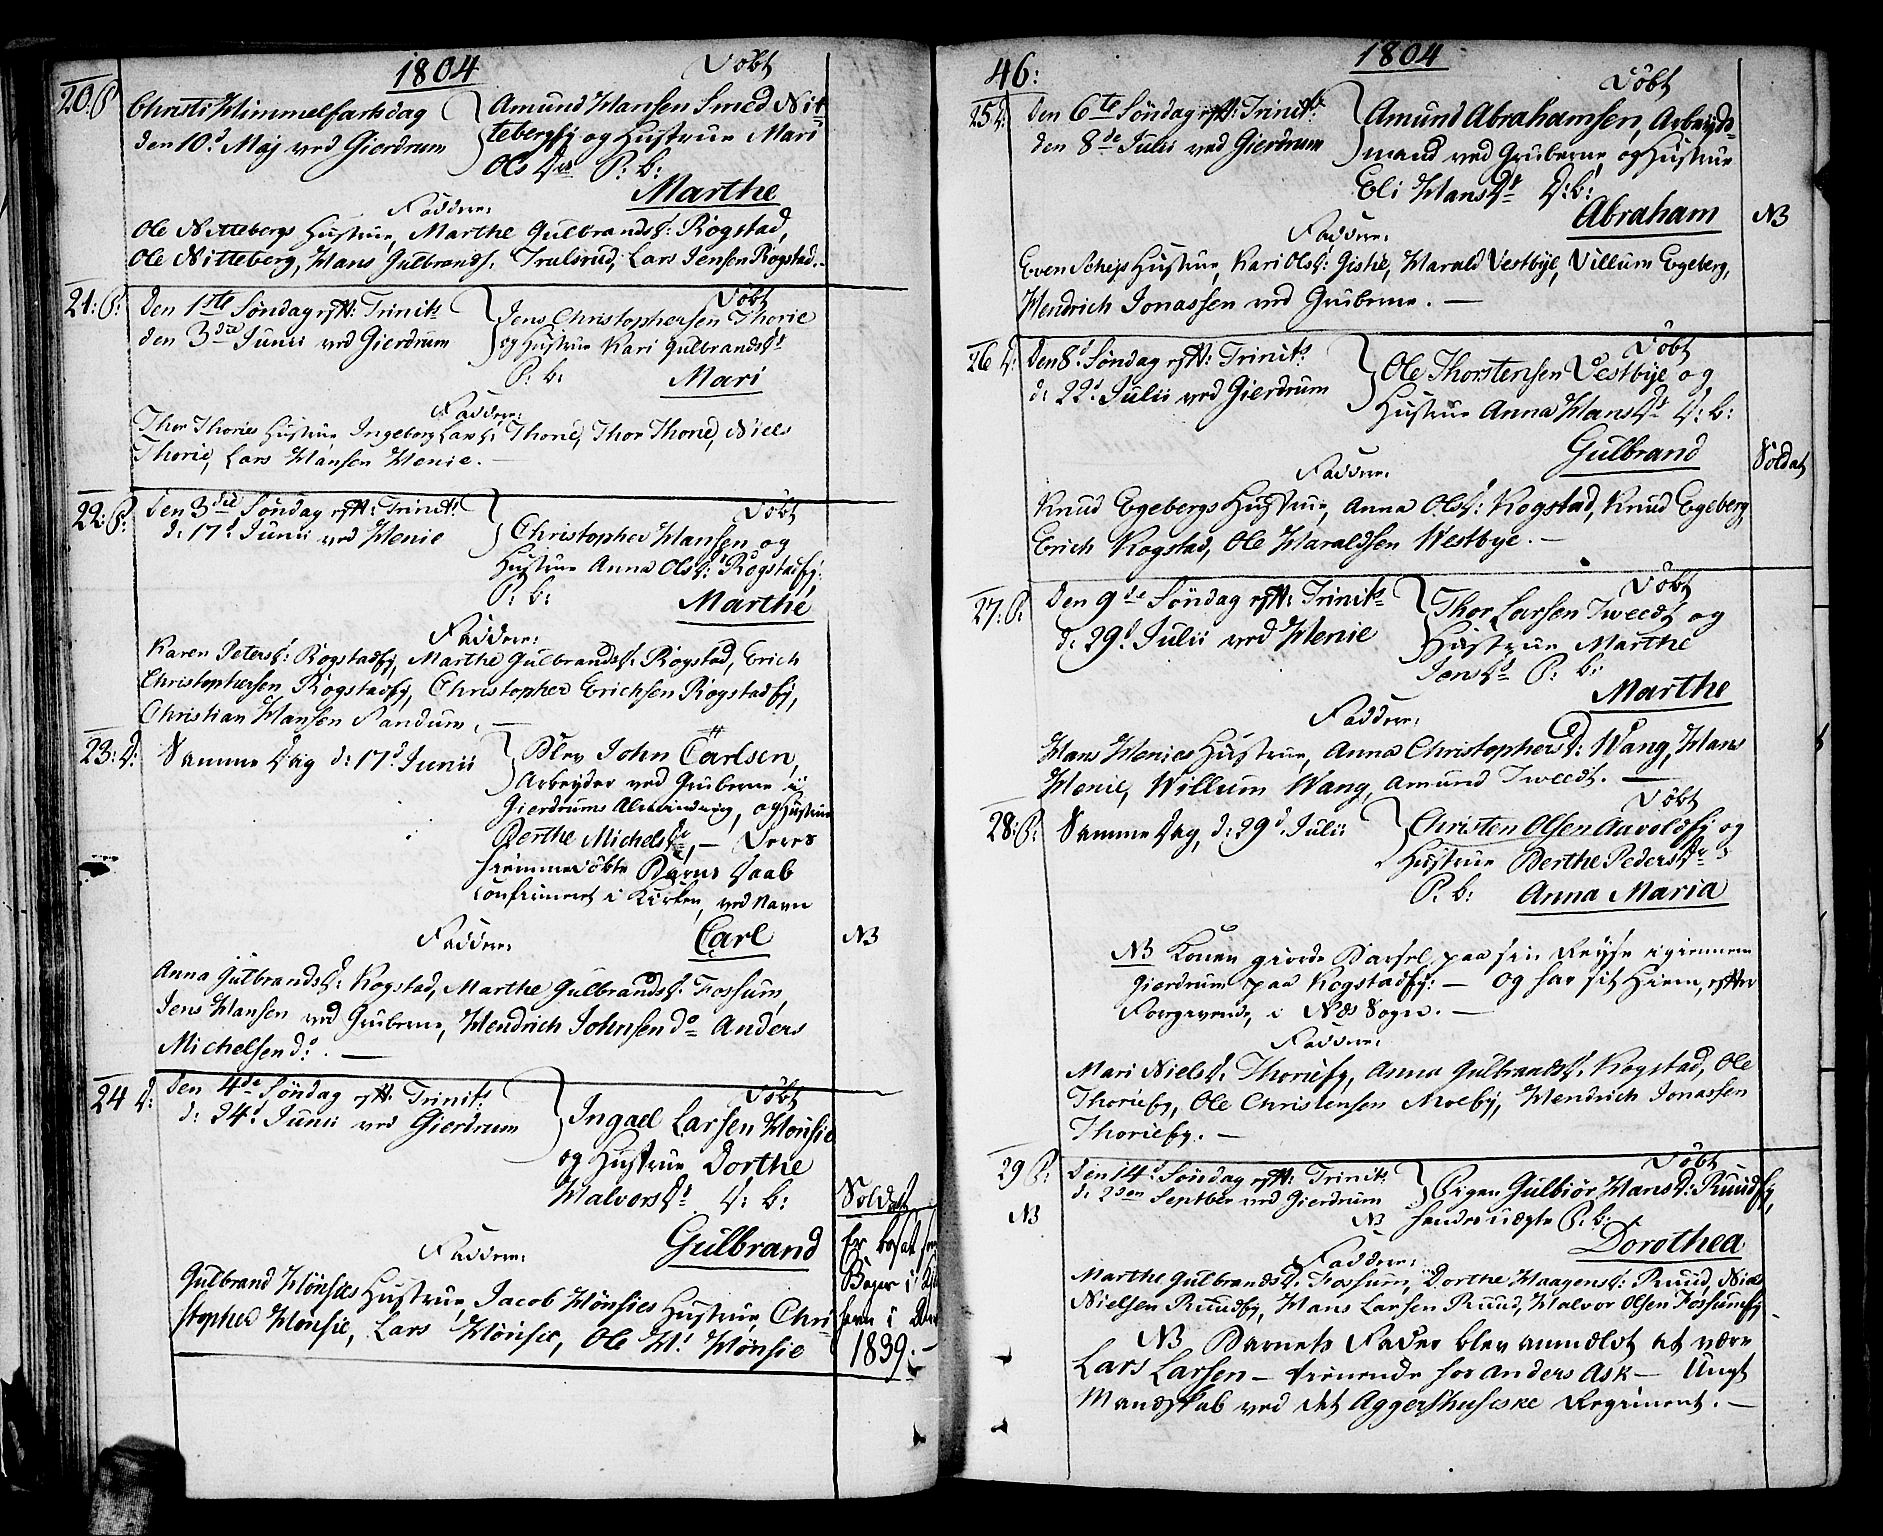 1804
Döbt
20. P.
Christi Himmelfartsdag
den 10d Maj ved Gierdrum
Amund Hansen Smed Nit-
tebergej og Hustrue Mari
Ols Dr P: b:
Marthe
Faddere:
Ole Nittebergs Hustrue, Marthe Gulbrandsd: Rogstad,
Ole Nitteberg, Hans Gulbrands. Trulsrud, Lars Jensen Rogstad.
21: P:
Den 1ste Söndag eft: Trinit:
den 3die Junii ved Gierdrum
Döbt
Jens Christophersen Thorie
og Hustrue Kari Gulbrandsdr
P: b:
Mari
Faddere:
Thor Thories Hustrue Ingeborg Larsd: Thorie, Thor Thorie, Niels
Thorie, Lars Hansen Henie. —
22: P:
Den 3die Söndag eft: Trinit:
d: 17d Junii ved Henie
Döbt
Christopher Hansen og
Hustrue Anna Olsd: Rogstadej:
P: b:
Marthe
Faddere:
Karen Petersd: Rogstadej, Marthe Gulbrandsd: Rogstad, Erich
Christophersen Rogstadej, Christopher Erichsen Rogstadej,
Christian Hansen Fandum. —
23: D:
Samme Dag d: 17d Junii
Blev John Carlsen,
Arbeyder ved Gruberne i
Gierdrums Alminding, og Hustrue
Berthe Michelsdr, — Deres
hiemmedöbte Barns Daab
confirmeret i Kirken, ved Navn
Carl
NB
Faddere:
Anna Gulbrandsd: Rogstad, Marthe Gulbrandsd. Fossum,
Jens Hansen ved Gruberne, Hendrich Johnsen do Anders
Michelsen do. —
24 D:
Den 4de Söndag eft: Trinit:
d: 24d Junii ved Gierdrum
Döbt
Ingael Larsen Hönsie
og Hustrue Dorthe
Halvorsdr D: b:
Gulbrand
Soldat
Er bosat som
Bager i
1839. —
Faddere:
Gulbrand Hönsies Hustrue, Jacob Hönsies Hustrue, Chri-
stopher Hönsie, Lars Hönsie, Ole H: Hönsie
46:
1804
Döbt
25 D:
Den 6te Söndag eft: Trinit:
den 8de Julii ved Gierdrum
Amund Abrahamsen, Arbeyds-
mand ved Gruberne, og Hustrue
Eli Hansdr D: b:
Abraham
NB
Faddere:
Even Schejs Hustrue, Kari Olsd: Jishe, Harald Vestbye, Villum Egeberg,
Hendrich Jonassen ved Gruberne. —
26 D:
Den 8d Söndag eft: Trinit:
d: 22d Julii ved Gierdrum
Döbt
Ole Thorstensen Vestbye og
Hustrue Anna Hansdr D: b:
Gulbrand
Soldat
Faddere:
Knud Egebergs Hustrue, Anna Olsd: Rogstad, Knud Egeberg,
Erich Rogstad, Ole Haraldsen Westbye. —
27: P:
Den 9de Söndag eft: Trinit:
d: 29d Julii ved Henie
Döbt
Thor Larsen Tweedt og
Hustrue Marthe
Jensdr P: b:
Marthe
Faddere:
Hans Henies Hustrue, Anna Christophersd: Wang, Hans
Henie, Willum Wang, Amund Tweedt. —
28: P:
Samme Dag, d: 29d Julii
Döbt
Christen Olsen Auvoldej og
Hustrue Berthe Pedersdr
P: b: Anna Maria
NB Konen giorde Barsel paa sin Reyse igiennem
Gierdrum paa Rogstadej: — og har sit Hiem, efter
Foregivende, i Næs Sogn. —
Faddere:
Mari Nielsd. Thorieej, Anna Gulbrandsd. Rogstad, Ole
Thorieej, Ole Christensen Moeby, Hendrich Jonassen
Thorieej. —
29 P:
NB
Den 14d Söndag eft: Trinit:
d: 2den Septber ved Gierdrum
Döbt
Pigen Gulbiör Hansd: Ruudej,
NB hendes uægte P: b:
Dorothea
Faddere:
Marthe Gulbrandsd. Fossum, Dorthe Haagensd: Ruud, Niels
Nielsen Ruudej, Hans Larsen Ruud, Halvor Olsen Fossumej.
NB Barnets Fader blev anmeldt at være
Lars Larsen — tienende hos Anders Ask — Ungt
Mandskab ved det Aggershuseske Regiment. —